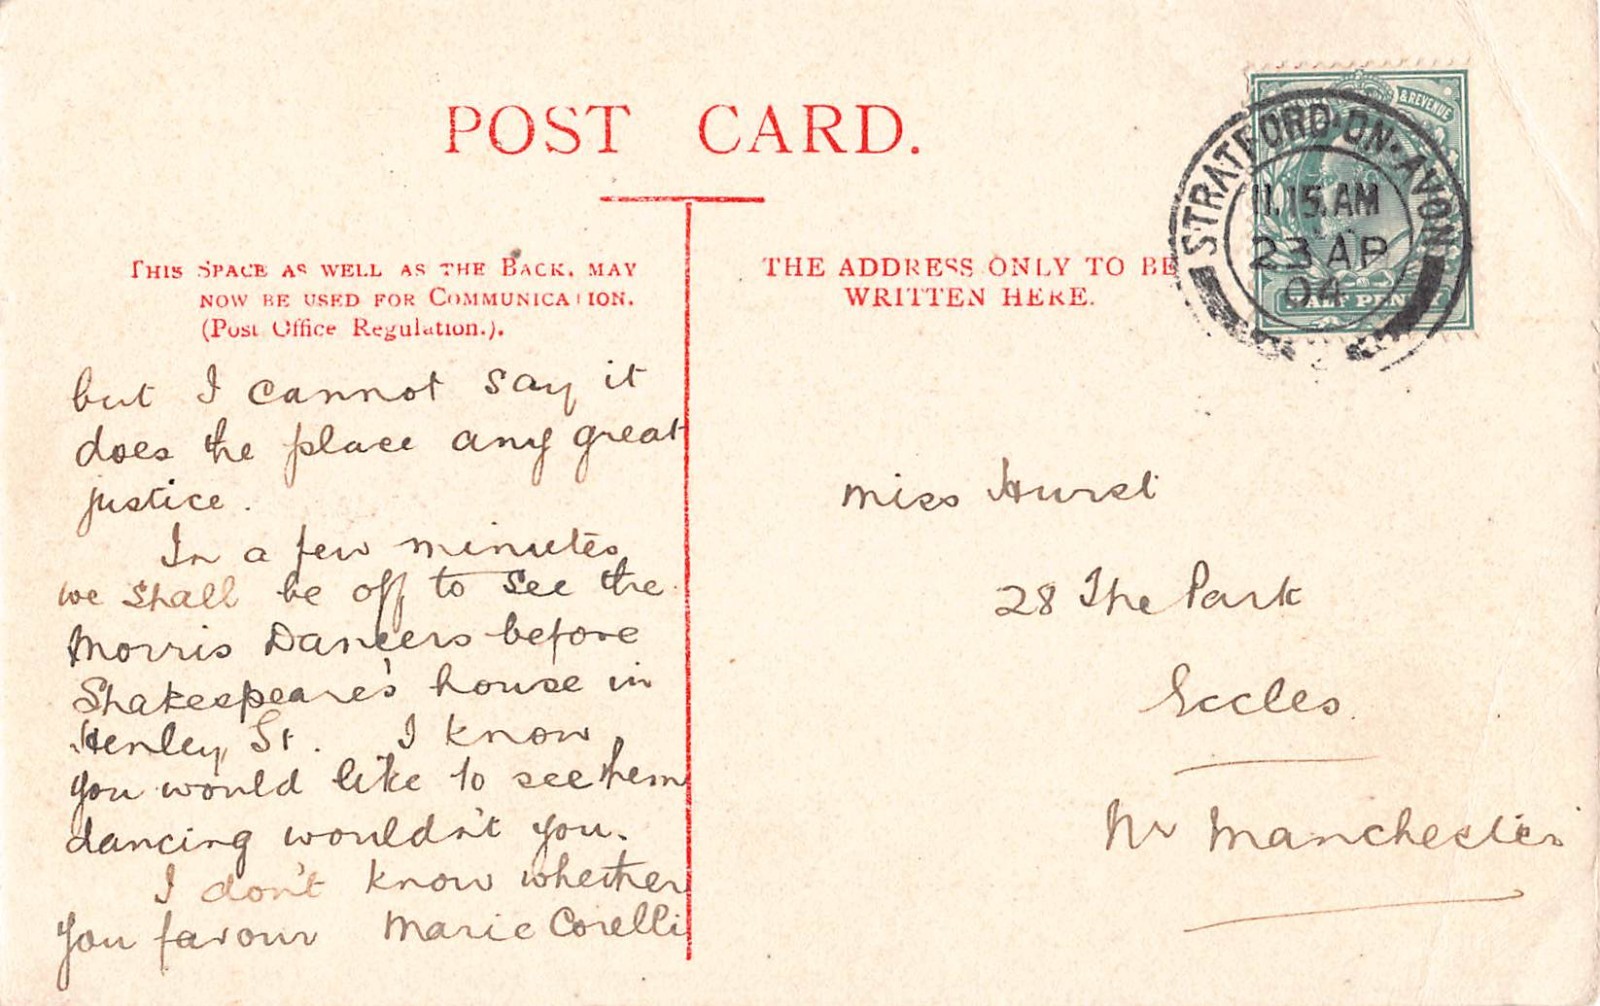 POST CARD.
THIS SPACE AS WELL AS THE BACK, MAY
NOW BE USED FOR COMMUNICATION.
(Post Office Regulation.).
but I cannot say it
does the place any great
justice.
In a few minutes
we shall be off to see the
Morris Dancers before
Shakespeare's house in
Henley St. I know
you would like to see them
dancing wouldn't you.
I don't know whether
you favour Marie Corelli
THE ADDRESS ONLY TO BE
WRITTEN HERE.
& REVENUE
HALF PENNY
STRATFORD-ON-AVON
11.15.AM
23 AP
04
Miss Hurst
28 The Park
Eccles
Nr Manchester